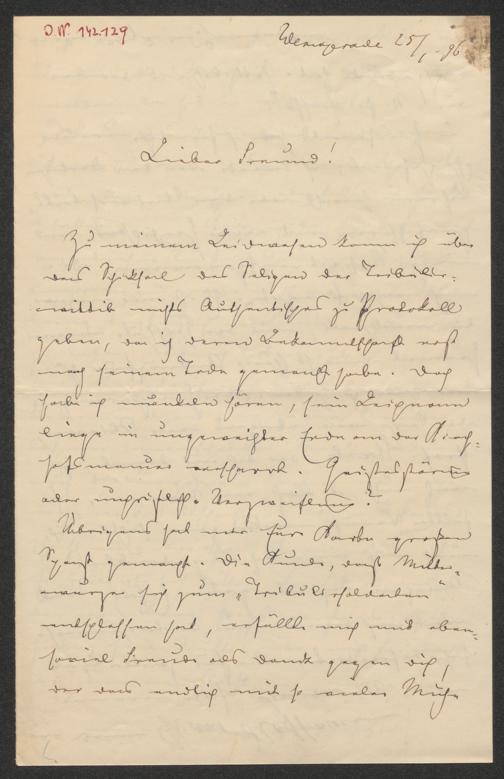 I.N. 142.129
Wernigerode 25/1. 96
Lieber Freund!
Zu meinem Leidwesen kann ich über
das Schicksal des Seligen der
nichts Authentisches zu Protokoll
geben, da ich deren Bekanntschaft erst
nach seinem Tode gemacht habe. Doch
habe ich munkeln hören, sein Leichnam
liege in ungeweihter Erde an der Kirch-
hofsmauer verscharrt. Geistesstörung
oder unchristliche Verzweiflung?
Übrigens hat mir Eure Karte großen
Spaß gemacht. Die Kunde, daß Mitter-
wurzer sich zum „
entschlossen hat, erfüllte mich mit eben-
soviel Freude als Dank gegen dich,
der das endlich mit so vieler Mühe